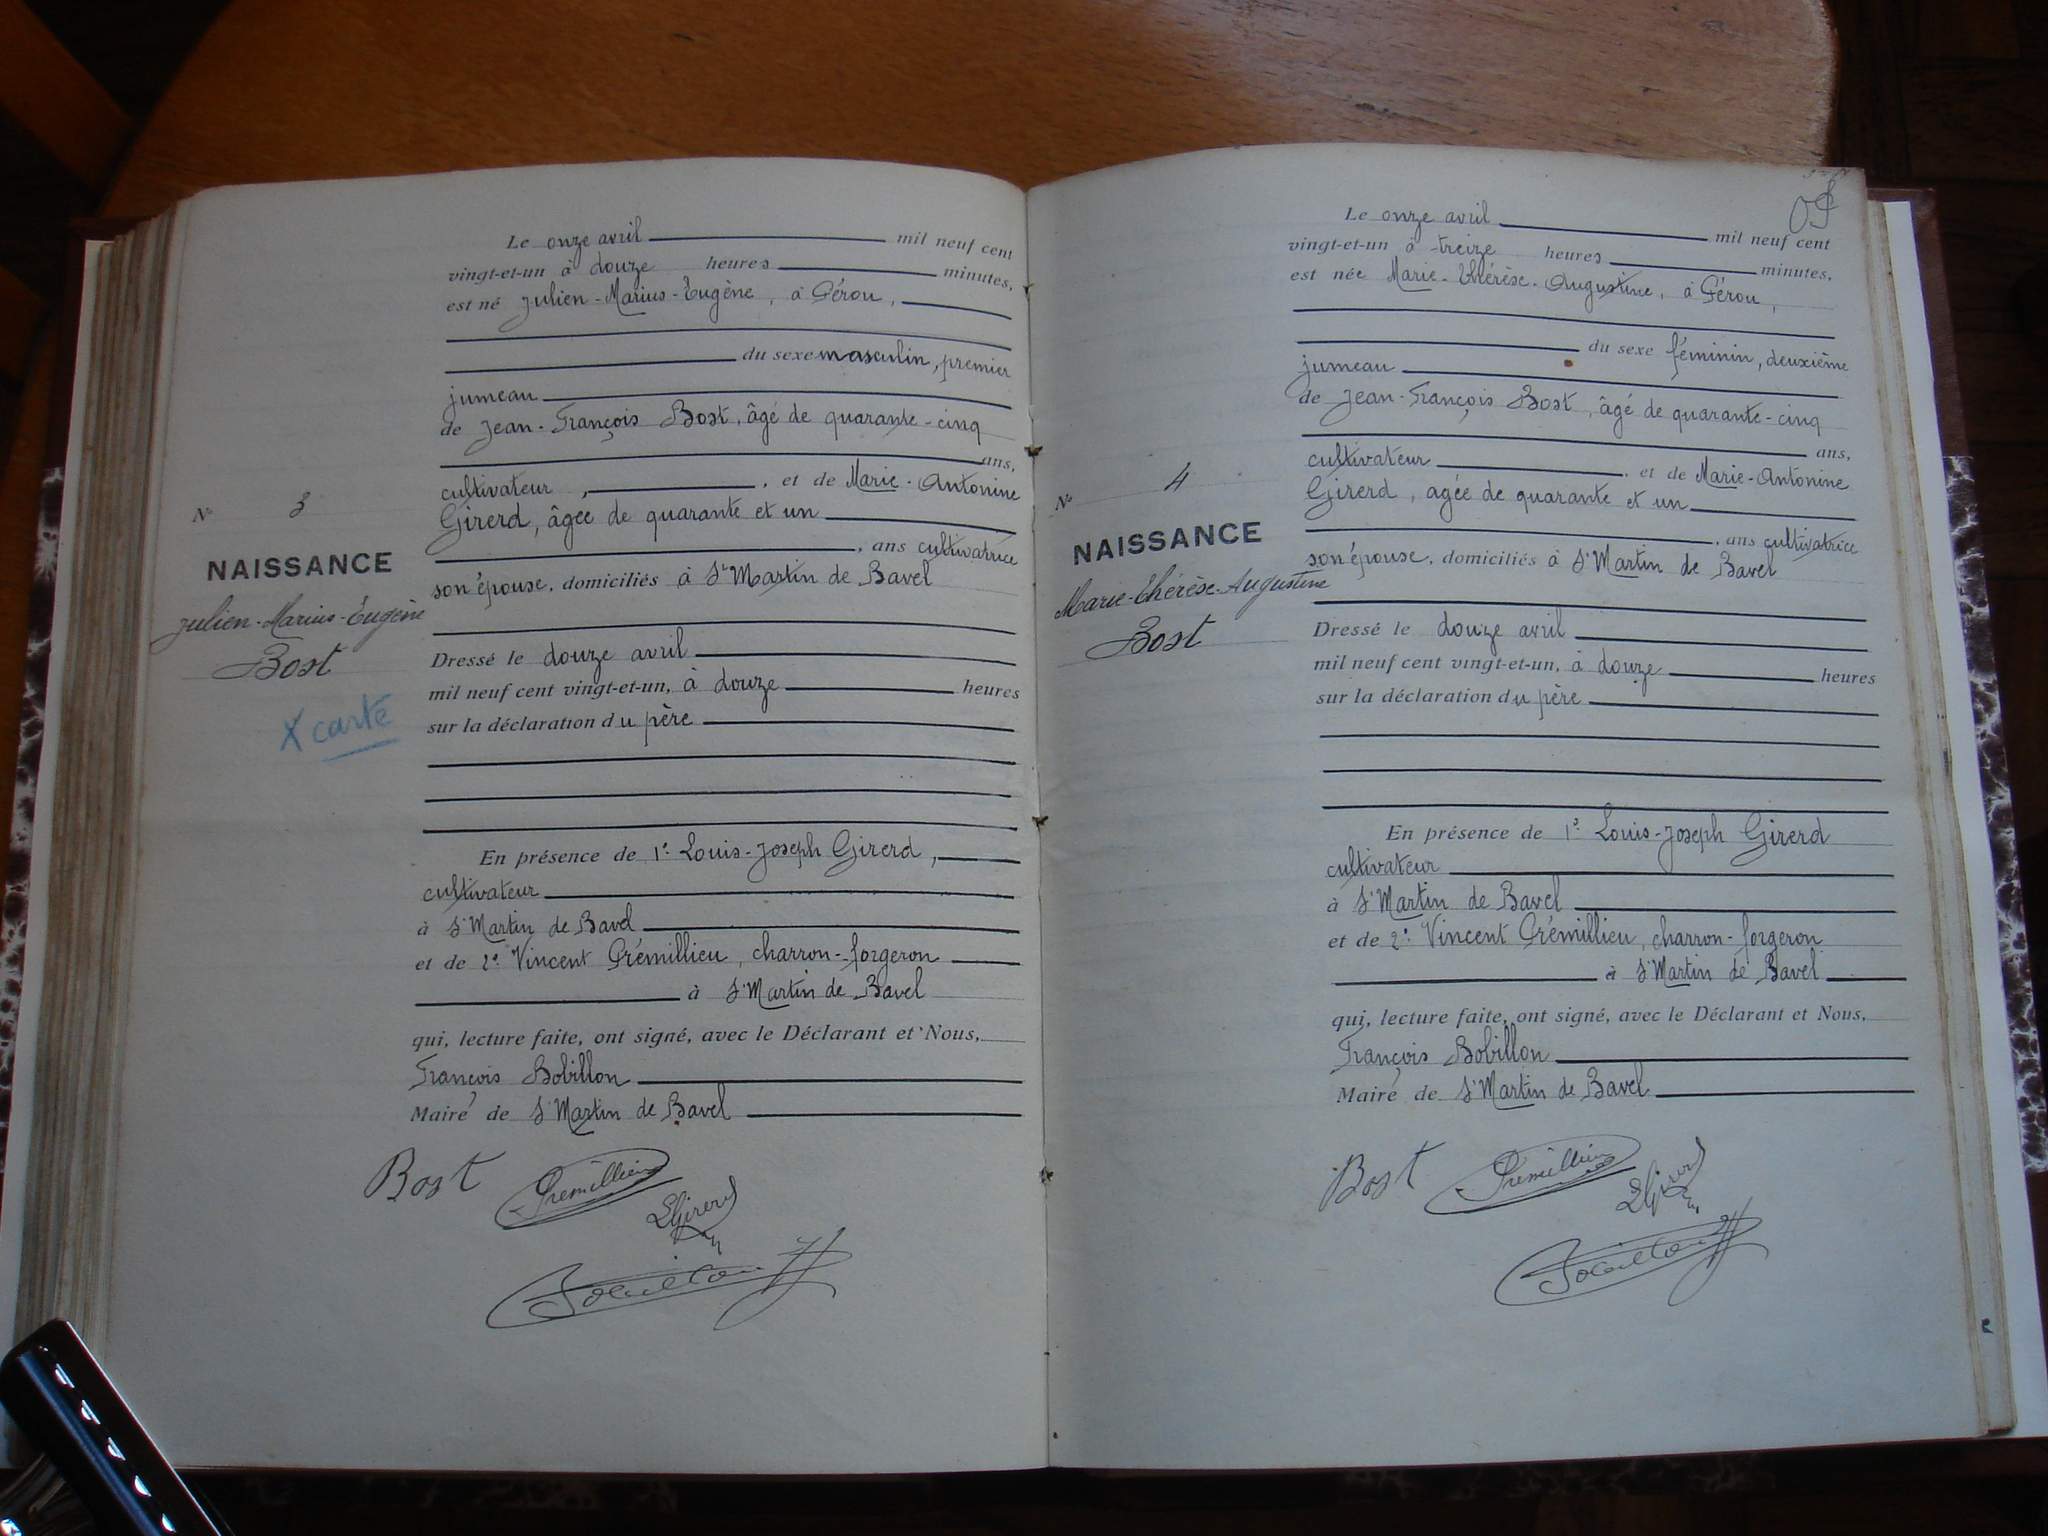 Le onze avril mil neuf cent
vingt-et-un à douze heures minutes,
est né Julien-Marius-Eugène, à Gérou,
du sexe masculin, premier
jumeau
de Jean-François Bost, âgé de quarante-cinq
ans,
cultivateur, , et de Marie-Antonine
Girerd, âgée de quarante et un
, ans cultivatrice
son épouse, domiciliés à St Martin de Bavel
Dressé le douze avril
mil neuf cent vingt-et-un, à douze heures
sur la déclaration du père
En présence de 1º Louis-Joseph Girerd,
cultivateur
à St Martin de Bavel
et de 2º Vincent Grémillieu, charron-forgeron
à St Martin de Bavel
qui, lecture faite, ont signé, avec le Déclarant et Nous,
François Bobillon
Maire de St Martin de Bavel
Nº 3
NAISSANCE
Julien-Marius-Eugène
Bost
X carte
Bost Gremillieu
LGirerd
Bobillon
Le onze avril mil neuf cent
vingt-et-un à treize heures minutes,
est née Marie-Thérèse-Augustine, à Gérou,
du sexe féminin, deuxième
jumeau
de Jean-François Bost, âgé de quarante-cinq
ans,
cultivateur , et de Marie-Antonine
Girerd, agée de quarante et un
, ans cultivatrice
son épouse, domiciliés à St Martin de Bavel
Dressé le douze avril
mil neuf cent vingt-et-un, à douze heures
sur la déclaration du père
En présence de 1º Louis-Joseph Girerd
cultivateur
à St Martin de Bavel
et de 2º Vincent Grémillieu, charron-forgeron
à St Martin de Bavel
qui, lecture faite, ont signé, avec le Déclarant et Nous,
François Bobillon
Maire de St Martin de Bavel
Nº 4
NAISSANCE
Marie-Thérèse-Augustine
Bost
Bost Gremillieu
LGirerd
Bobillon